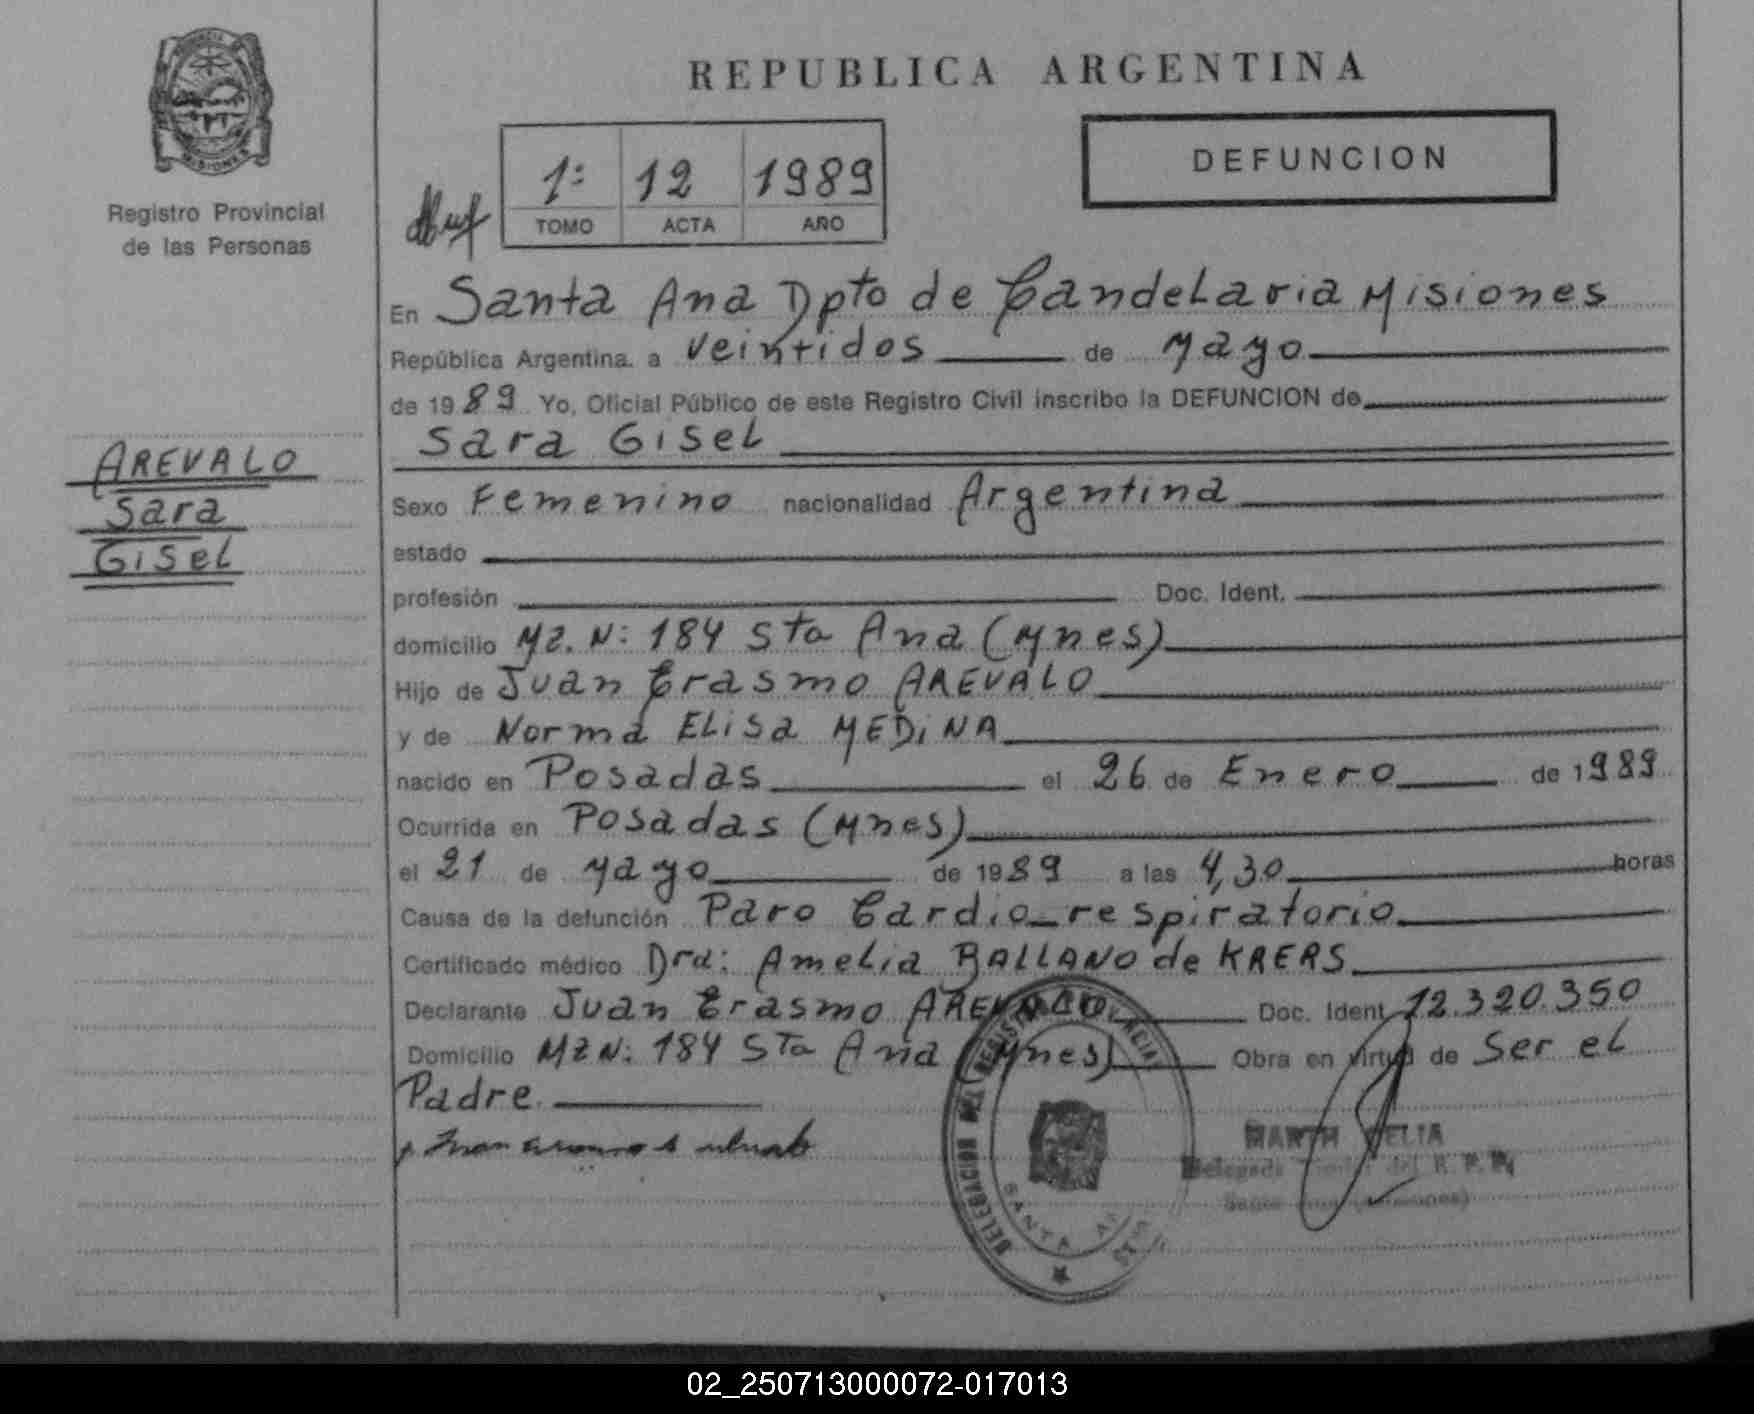 PROVINCIA DE
MISIONES
Registro Provincial
de las Personas
AREVALO
Sara
Gisel
REPUBLICA ARGENTINA
1: 12 1989
TOMO ACTA AÑO
DEFUNCION
En Santa Ana Dpto de Candelaria Misiones
República Argentina. a veintidos de Mayo
de 1989 Yo, Oficial Público de este Registro Civil inscribo la DEFUNCION de
Sara Gisel
Sexo Femenino nacionalidad Argentina
estado
profesión Doc. Ident.
domicilio Mz. N: 184 Sta Ana (Mnes)
Hijo de Juan Erasmo AREVALO
y de Norma Elisa MEDiNA
nacido en Posadas el 26 de Enero de 1989
Ocurrida en Posadas (Mnes)
el 21 de Mayo de 1989 a las 4,30 horas
Causa de la defunción Paro Cardio-respiratorio
Certificado médico Dra: Amelia BALLANO de KRERS
Declarante Juan Erasmo AREVALO Doc. Ident 12.320.350
Domicilio Mz N: 184 Sta Ana (Mnes) Obra en virtud de Ser el
Padre.
DELEGACION DEL REGISTRO PROVINCIAL
SANTA
Delegada Titular del R. P. P.
02_250713000072-017013